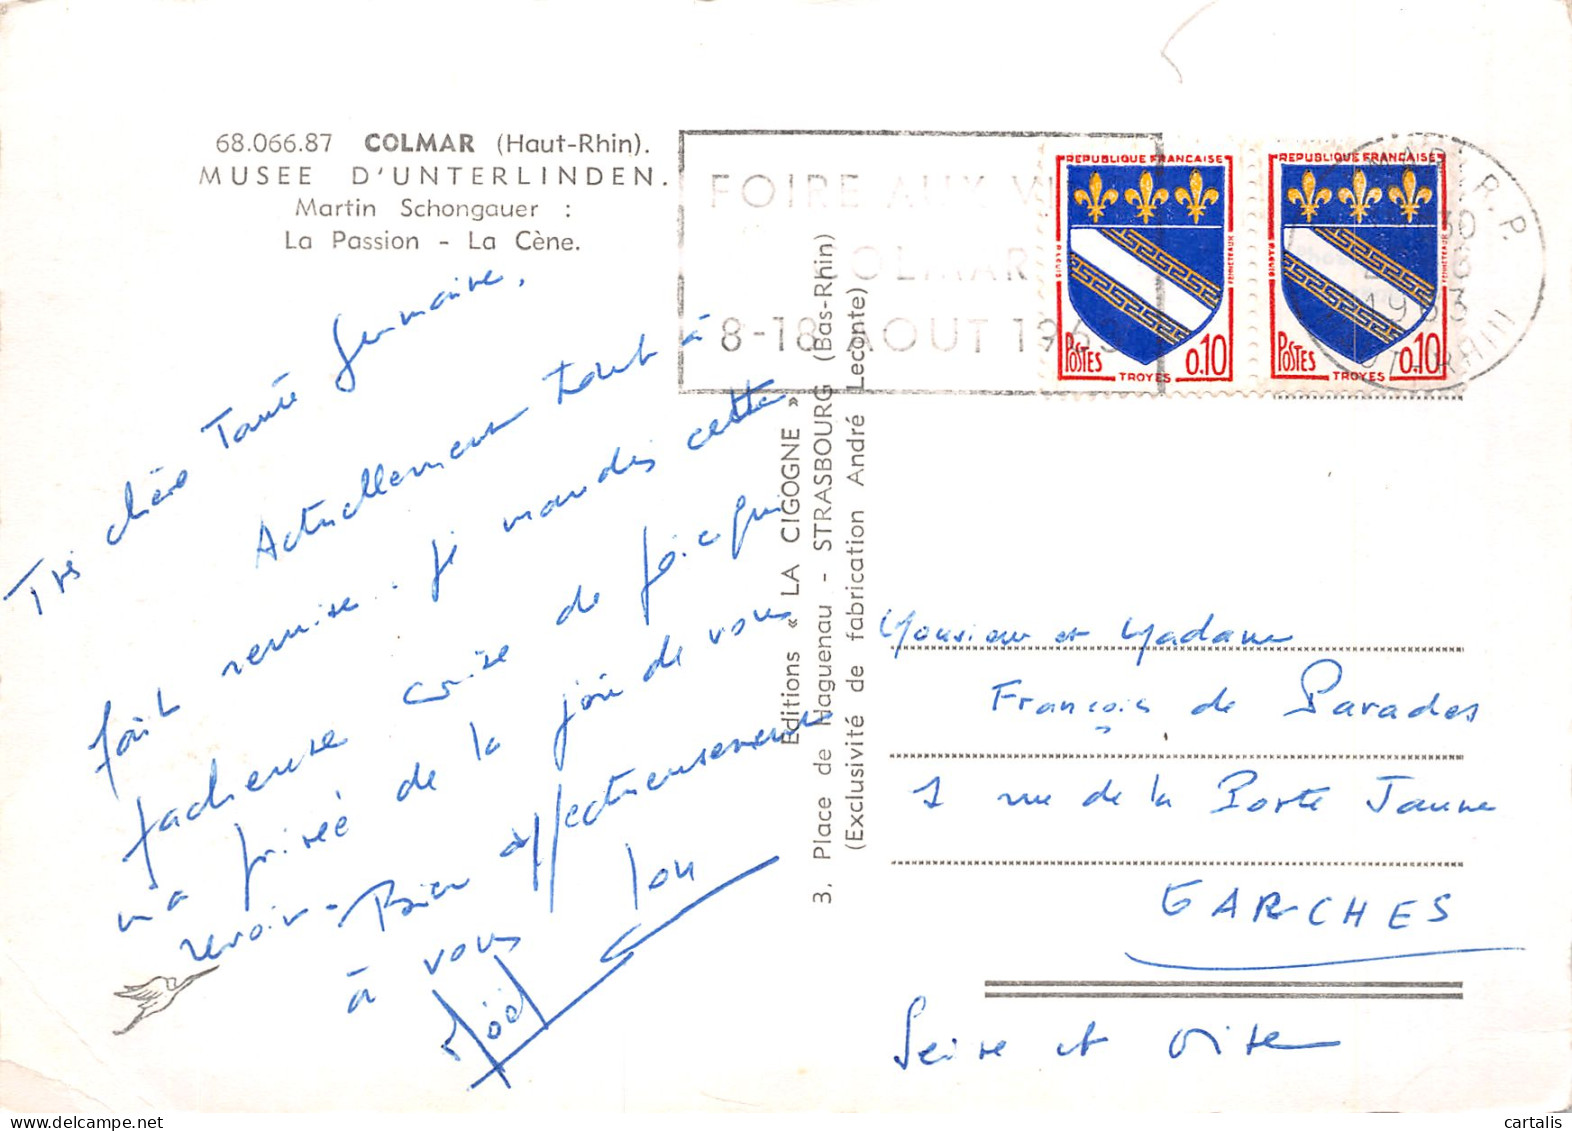 68.066.87 COLMAR (Haut-Rhin).
MUSEE D'UNTERLINDEN.
Martin Schongauer :
La Passion - La Cène.
Très chère Tante Germaine,
Actuellement tout à
fait remise. je maudis cette
facheuse crise de foie qui
m'a privée de la joie de vous
revoir. Bien affectueusement
à vous
Noël
Editions « LA CIGOGNE »
3, Place de Haguenau - STRASBOURG (Bas-Rhin)
(Exclusivité de fabrication André Leconte)
FOIRE AUX VI
COLMAR
8-18 AOUT 1963
REPUBLIQUE FRANÇAISE
POSTES 0.10
TROYES
REPUBLIQUE FRANÇAISE
POSTES 0.10
TROYES
R.P.
1963
Monsieur et Madame
François de Parades
1 rue de la Porte Jaune
GARCHES
Seine et Oise
cartalis